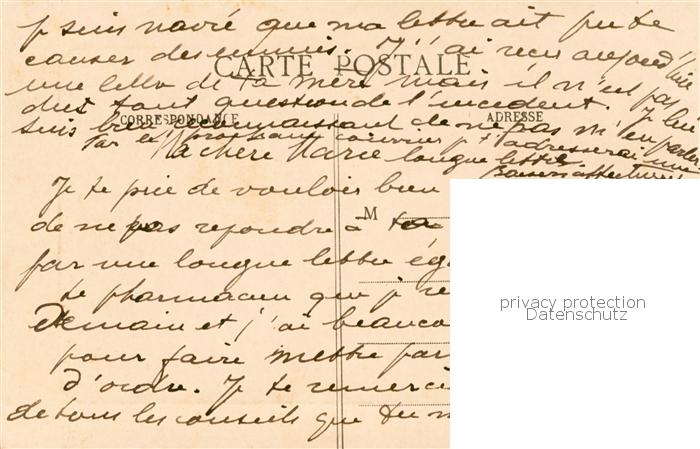 je suis navré que ma lettre ait pu te
causer des ennuis. J'ai reçu aujourd'hui
une lettre de ta mère mais il n'est pas
du tout question de l'incident. Je lui
suis bien reconnaissant de ne pas m'en parler
CARTE POSTALE
CORRESPONDANCE
ADRESSE
Par le prochain courrier je t'adresserai une
longue lettre
Baisers affectueux
Ma chère Marie
Je te prie de vouloir bien
M
de ne pas répondre à
par une longue lettre
le pharmacien que je
demain et j'ai
pour faire mettre par
d'ordre. Je te
de tous les conseils que tu
privacy protection
Datenschutz